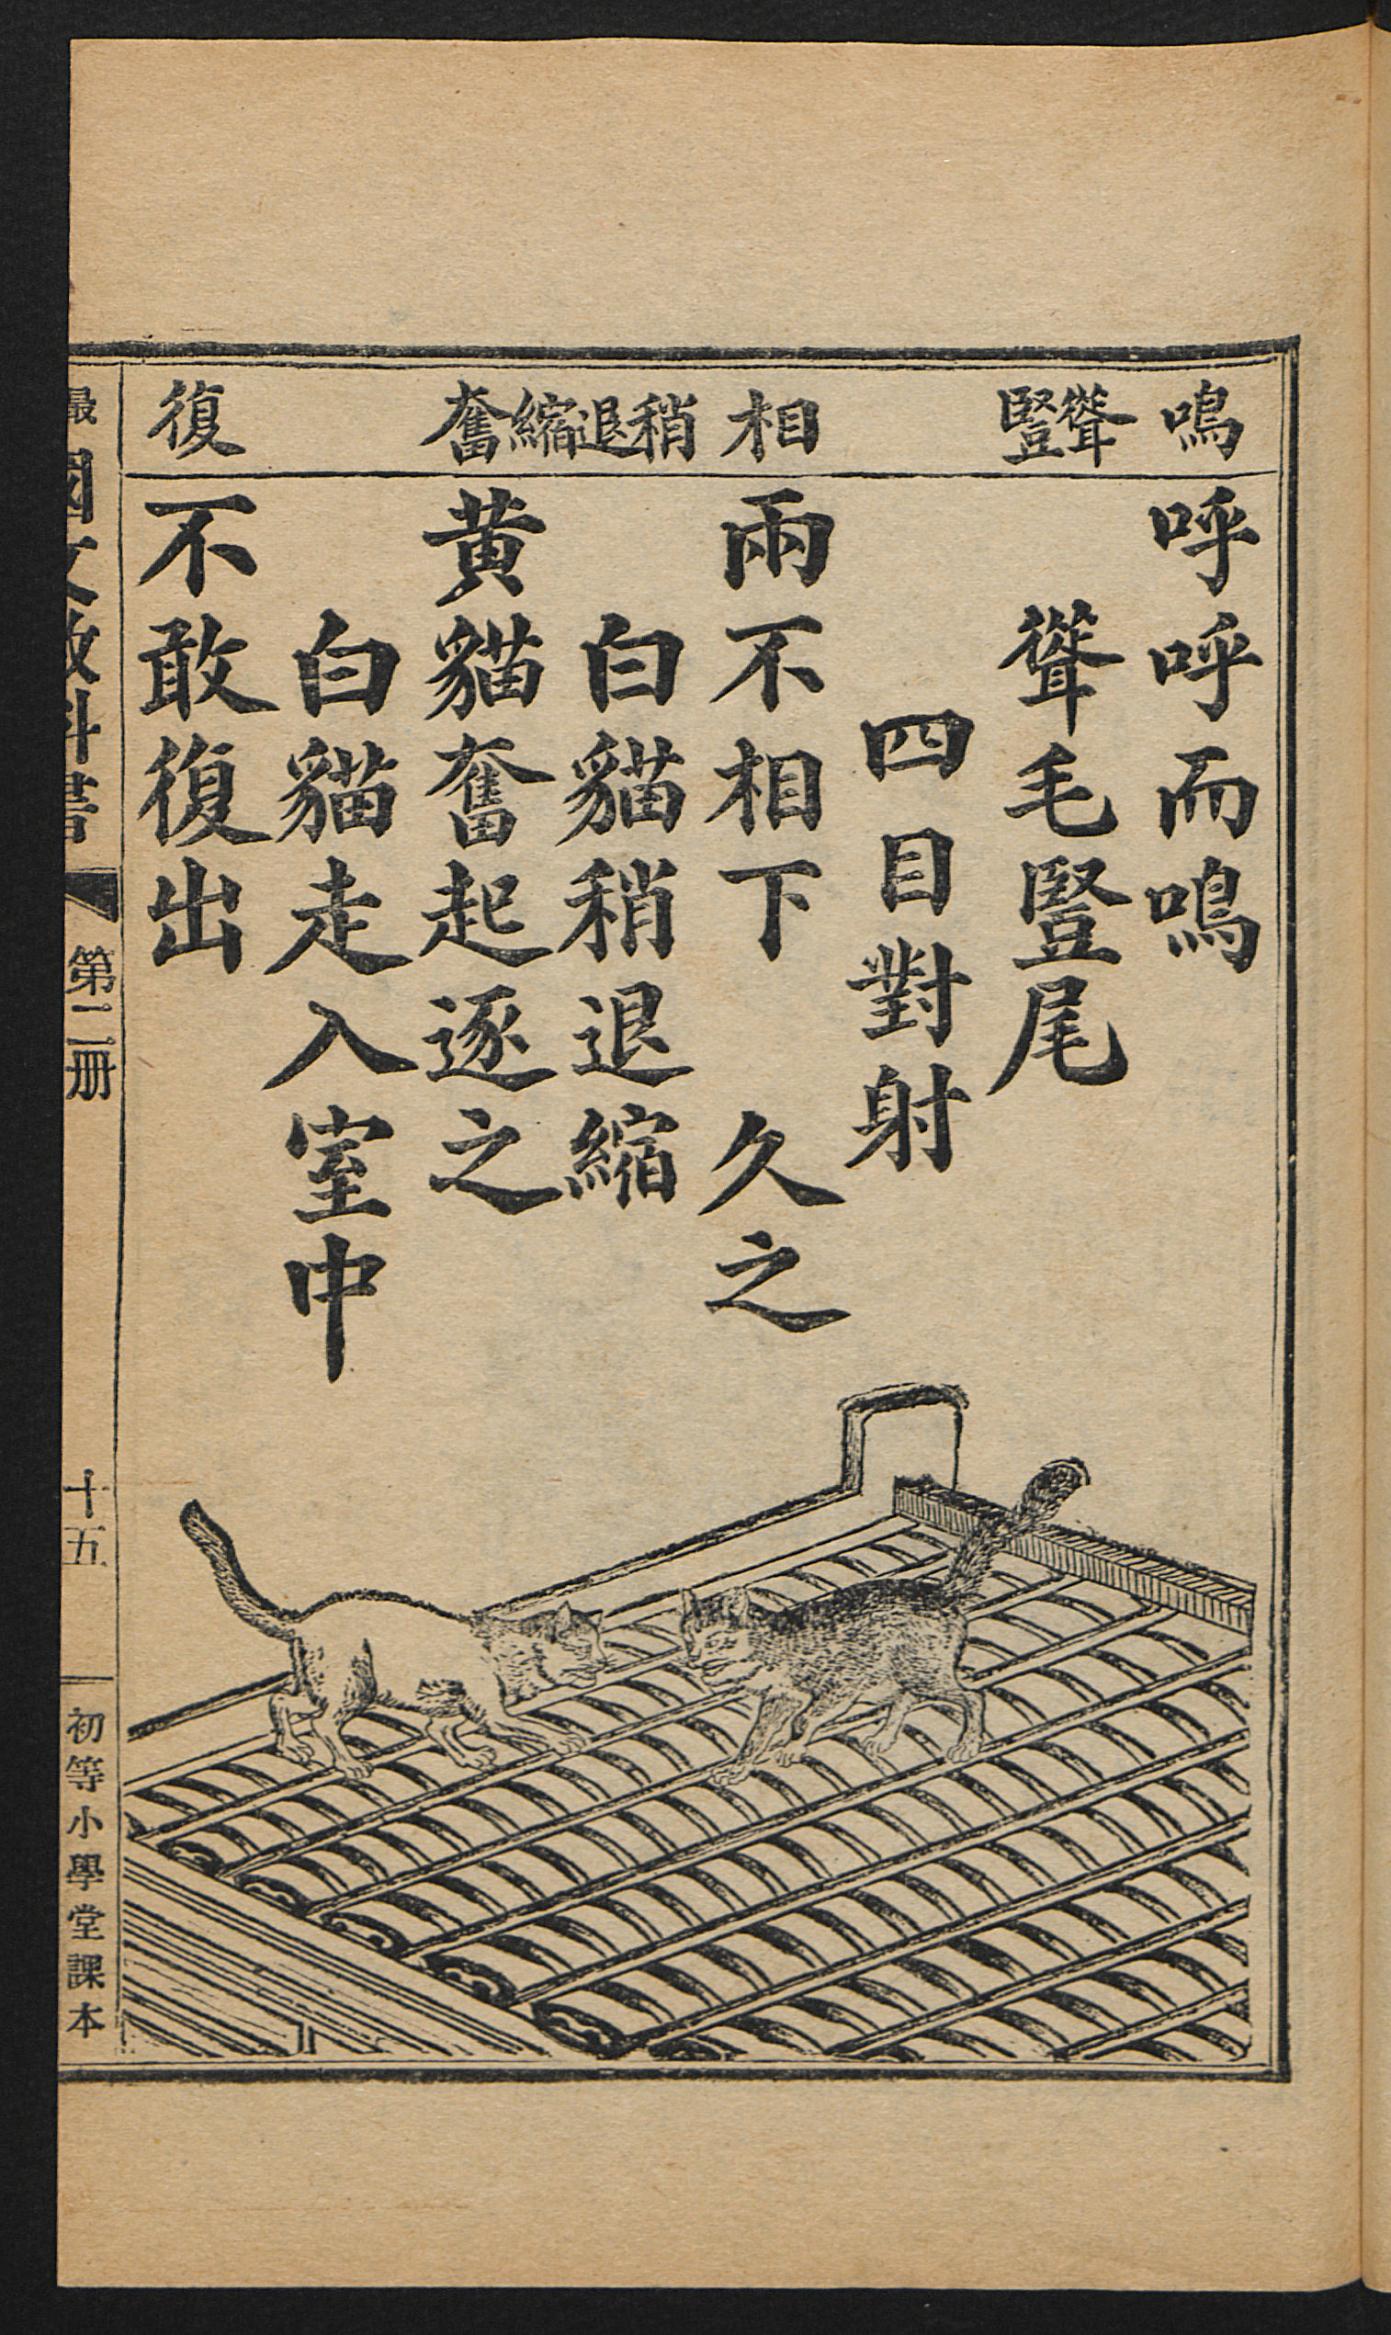 鳴
聳
豎
相
稍
退
縮
奮
復
呼呼而鳴
聳毛豎尾
四目對射
兩不相下　久之
白貓稍退縮
黄貓奮起逐之
白貓走入室中
不敢復出
最
國文教科書
第二册
十五
初等小學堂課本